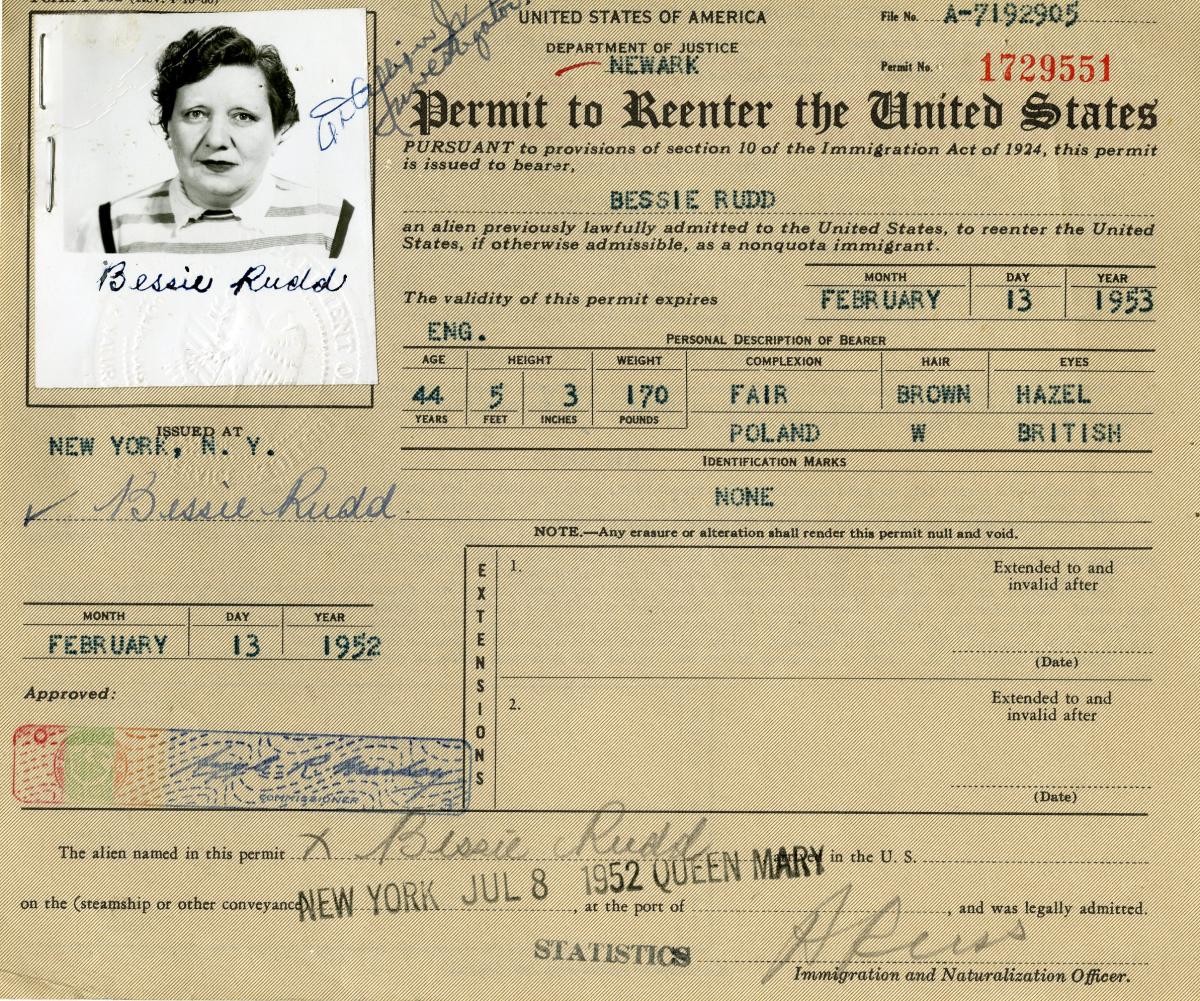 UNITED STATES OF AMERICA
File No. A-7192905
DEPARTMENT OF JUSTICE
NEWARK
Permit No. 1729551
Investigator
Permit to Reenter the United States
PURSUANT to provisions of section 10 of the Immigration Act of 1924, this permit
is issued to bearer,
BESSIE RUDD
an alien previously lawfully admitted to the United States, to reenter the United
States, if otherwise admissible, as a nonquota immigrant.
Bessie Rudd
MONTH DAY YEAR
The validity of this permit expires FEBRUARY 13 1953
ENG. PERSONAL DESCRIPTION OF BEARER
AGE HEIGHT WEIGHT COMPLEXION HAIR EYES
44 5 3 170 FAIR BROWN HAZEL
YEARS FEET INCHES POUNDS
POLAND W BRITISH
ISSUED AT
NEW YORK, N. Y.
IDENTIFICATION MARKS
NONE
Bessie Rudd
NOTE.—Any erasure or alteration shall render this permit null and void.
EXTENSIONS
1. Extended to and
invalid after
(Date)
MONTH DAY YEAR
FEBRUARY 13 1952
Approved:
2. Extended to and
invalid after
(Date)
COMMISSIONER
The alien named in this permit X Bessie Rudd arrived in the U. S.
NEW YORK JUL 8 1952 QUEEN MARY
on the (steamship or other conveyance , at the port of , and was legally admitted.
STATISTICS
Immigration and Naturalization Officer.